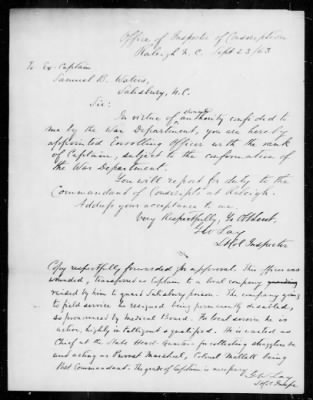 Office of Inspector of Conscription
Raleigh N. C. Sept 23/63
To Ex-Captain
Samuel B. Waters,
Salisbury, N.C.
Sir:
In virtue of authority confided to
me by the War Department, you are hereby
appointed Enrolling Officer with the rank
of Captain, subject to the confirmation of
the War Department.
You will report for duty to the
Commandant of Conscripts at Raleigh.
Address your acceptance to me.
Very Respectfully, Yr Obt Servt,
Geo W Lay
Lt Col Inspector
Copy respectfully forwarded for approval. This officer was
wounded, transferred as Captain to a local company
raised by him to guard Salisbury prison. The company going
to field service he resigned being permanently disabled,
so pronounced by Medical Board. For local service he is
active, highly intelligent & qualified. He is wanted as
Chief at the State Head-Quarters for collecting stragglers &c
and acting as Provost Marshal, Colonel Mallett being
Post Commandant. The grade of Captain is necessary.
G. W. Lay
Lt Col Insptr